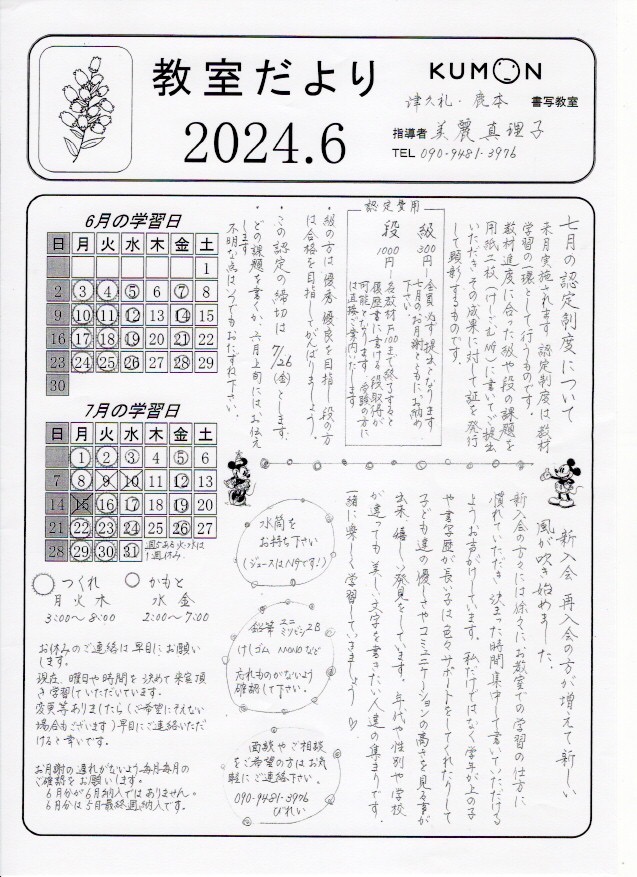 教室だより
2024.6
KUMON
津久礼・鹿本 書写教室
指導者 美麗 真理子
TEL 090-9481-3976
七月の認定制度について
来月実施されます認定制度は教材
学習の一環として行うものです。
教材進度に合った級や段の課題を
用紙二枚(けしゴム所)に書いてご提出
いただき、その成果に対して証を発行
して顕彰するものです。
認定費用
級 300円 全員必ず提出となります
七月のお月謝とともにお納め
下さい。
段 1000円 各教材F100まで終了すると
履歴書に書ける段取得が
可能となります 受験の方に
は直接ご案内いたします
・級の方は優秀 優良を目指し 段の方
は合格を目指してがんばりましょう。
・この認定の締切は 7/26(金)とします。
・どの課題を書くか、六月上旬にはお伝え
します
不明な点はいつでもおたずね下さい。
6月の学習日
日 月 火 水 木 金 土
1
2 3 4 5 6 7 8
9 10 11 12 13 14 15
16 17 18 19 20 21 22
23 24 25 26 27 28 29
30
7月の学習日
日 月 火 水 木 金 土
1 2 3 4 5 6
7 8 9 10 11 12 13
14 15 16 17 18 19 20
21 22 23 24 25 26 27
28 29 30 31 週5ある火・水は
1週休み
つくれ
月 火 木
3:00〜8:00
かもと
水 金
2:00〜7:00
お休みのご連絡は早目にお願い
します。
現在、曜日や時間を決めて来室頂
き学習していただいています。
変更等ありましたら(ご希望にそえない
場合もございます)早目にご連絡いただ
けると幸いです。
お月謝の遅れがないよう毎月毎月の
ご確認をお願いします。
6月分が6月納入ではありません。
6月分は5月最終週納入です。
水筒を
お持ち下さい
(ジュースはNGです!)
鉛筆 ユニ ミツビシ2B
けしゴム MONOなど
忘れものがないよう
確認して下さい。
面談やご相談
をご希望の方はお気
軽にご連絡下さい。
090-9481-3976
びれい
新入会 再入会の方が増えて新しい
風が吹き始めました。
新入会の方々には徐々にお教室での学習の仕方に
慣れていただき 決まった時間集中して書いていただける
ようお声がけしています。私だけではなく学年が上の子
や書写歴が長い子は色々サポートをしてくれたりして
子ども達の優しさやコミュニケーションの高さを見る事が
出来 嬉しい発見をしています。年代や性別や学校
が違っても 美しい文字を書きたい人達の集まりです。
一緒に楽しく学習していきましょう♡